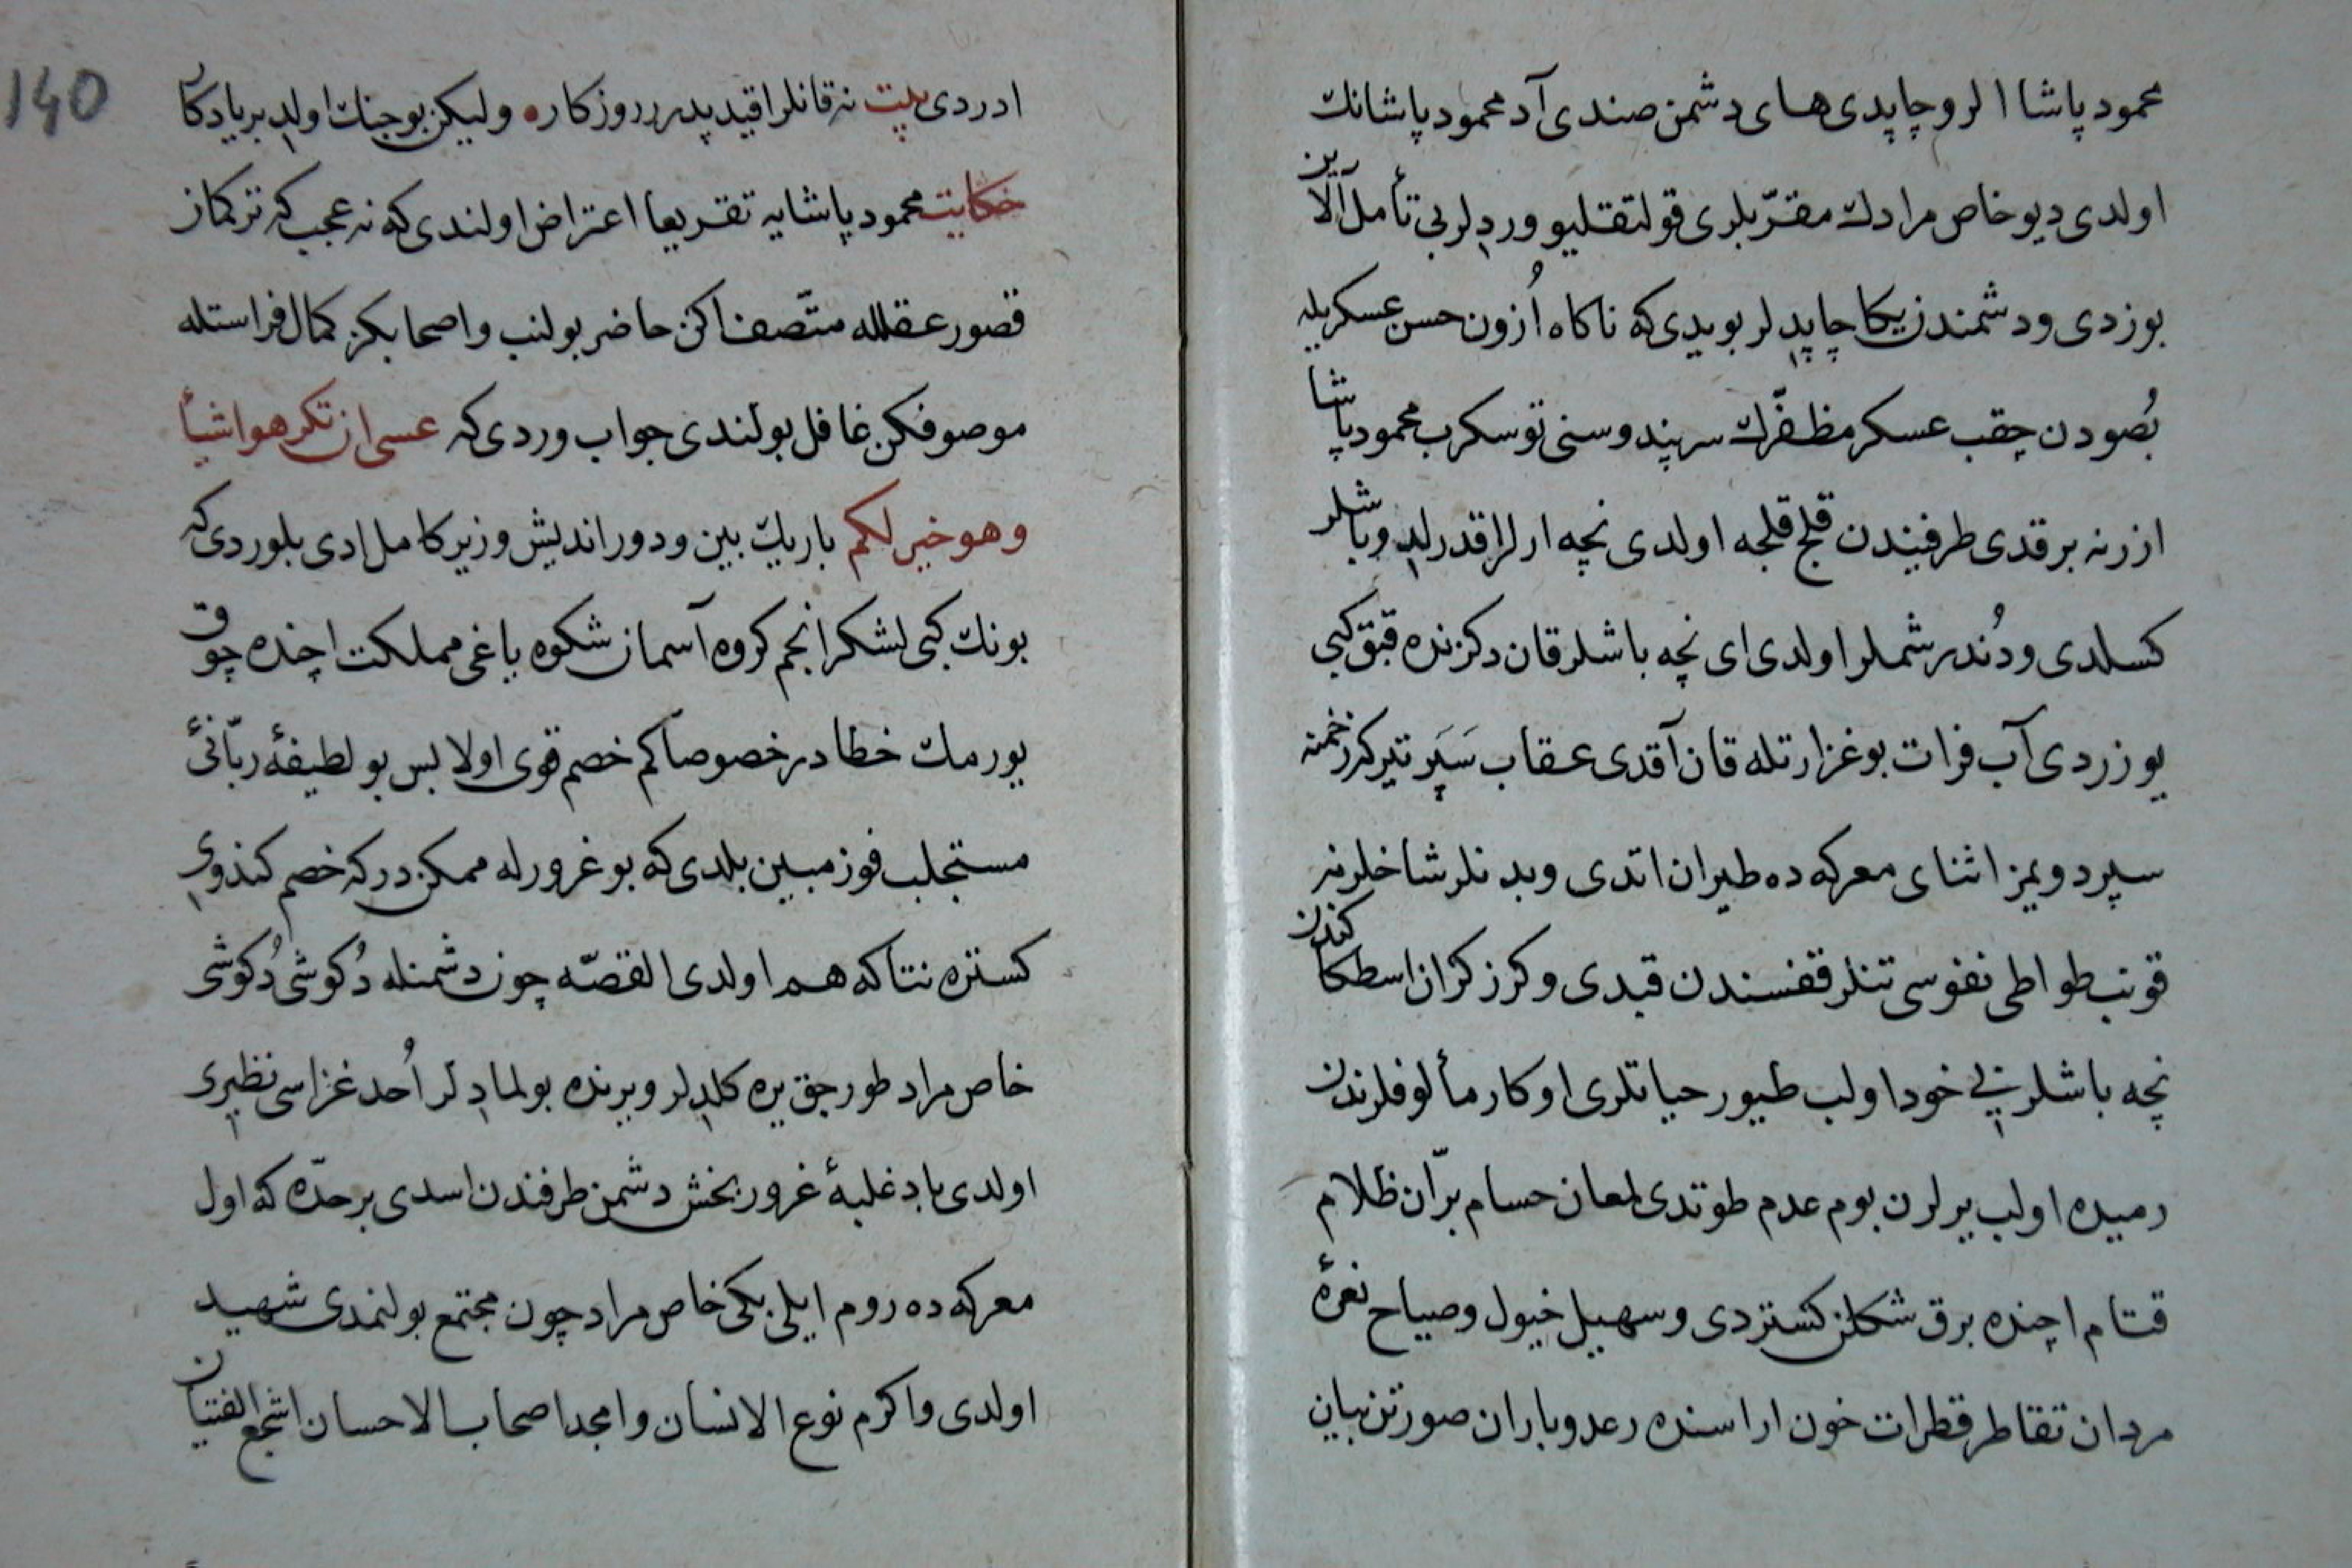 محمود پاشا الرو چاپدی های دشمن صندی آد محمود پاشانك
اولدی دیو خاص مرادك مقرّبلری قولتقلیو وردلر بی تأمل آلاین
بوزدی و دشمندن یكا چاپدلر بویدی كه ناكاه اُزون حسن عسكریله
بُصودن چقب عسكر مظفّرك سر پندوسنی توسكرب محمود پاشا
ازرنه برقدی طرفیندن قلج قلجه اولدی نچه ارلر اقدرلد و باشلر
كسلدی و دُندر شملر اولدی ای نچه باشلر قان دكزنده قبق كبی
یوزردی آب فرات بوغزارتله قان آقدی عقاب سَپَر تیر كرزخمنه
سپرد ویمز اثنای معركه ده طیران اتدی و بدنلر شاخلرنه
قونب طواطی نفوسی تنلر قفسندن قیدی و كرز كران اسطكاكندن
نچه باشلر نی خود اولب طیور حیاتلری اوكار مألوفلرندن
رمیده اولب یرلرن بوم عدم طوتدی لمعان حسام برّان ظلام
قتام اچنده برق شكلن كستردی و سهیل خیول و صیاح نعرهٔ
مردان تقاطر قطرات خون اراسنده رعد و باران صورتن بیان
140
ادردی بیت نه قانلر اقیدیدر روزكاره ولیكن بو جنك اولد بر یادكار
حكایت محمود پاشایه تقریعا اعتراض اولندی كه نه عجب كه تركمان
قصور عقلله متّصف اكن حاضر بولنب و اصحابكز كمال فراستله
موصوفكن غافل بولندی جواب وردی كه عسی ان تكرهوا شیأ
وهو خیر لكم باریك بین و دور اندیش وزیر كامل ادی بلوردی كه
بونك كبی لشكر انجم كروه آسمان شكوه یاغی مملكت اچنده چوق
یورمك خطا در خصوصا كم خصم قوی اولا بس بو لطیفهٔ ربّانئ
مستجلب فوز مبین بلدی كه بو غرورله ممكن در كه خصم كندوی
كستره نتاكه هم اولدی القصّه چون دشمنله دُكوشی دُكوشی
خاص مراد طورجق یره كلدلر و یرنده بولمادلر اُحد غزاسی نظیری
اولدی باد غلبهٔ غرور بخش دشمن طرفندن اسدی بر حدّه كه اول
معركه ده روم ایلی بكی خاص مراد چون مجتمع بولنمدی شهید
اولدی و اكرم نوع الانسان و امجد اصحاب الاحسان اشجع الفتیان